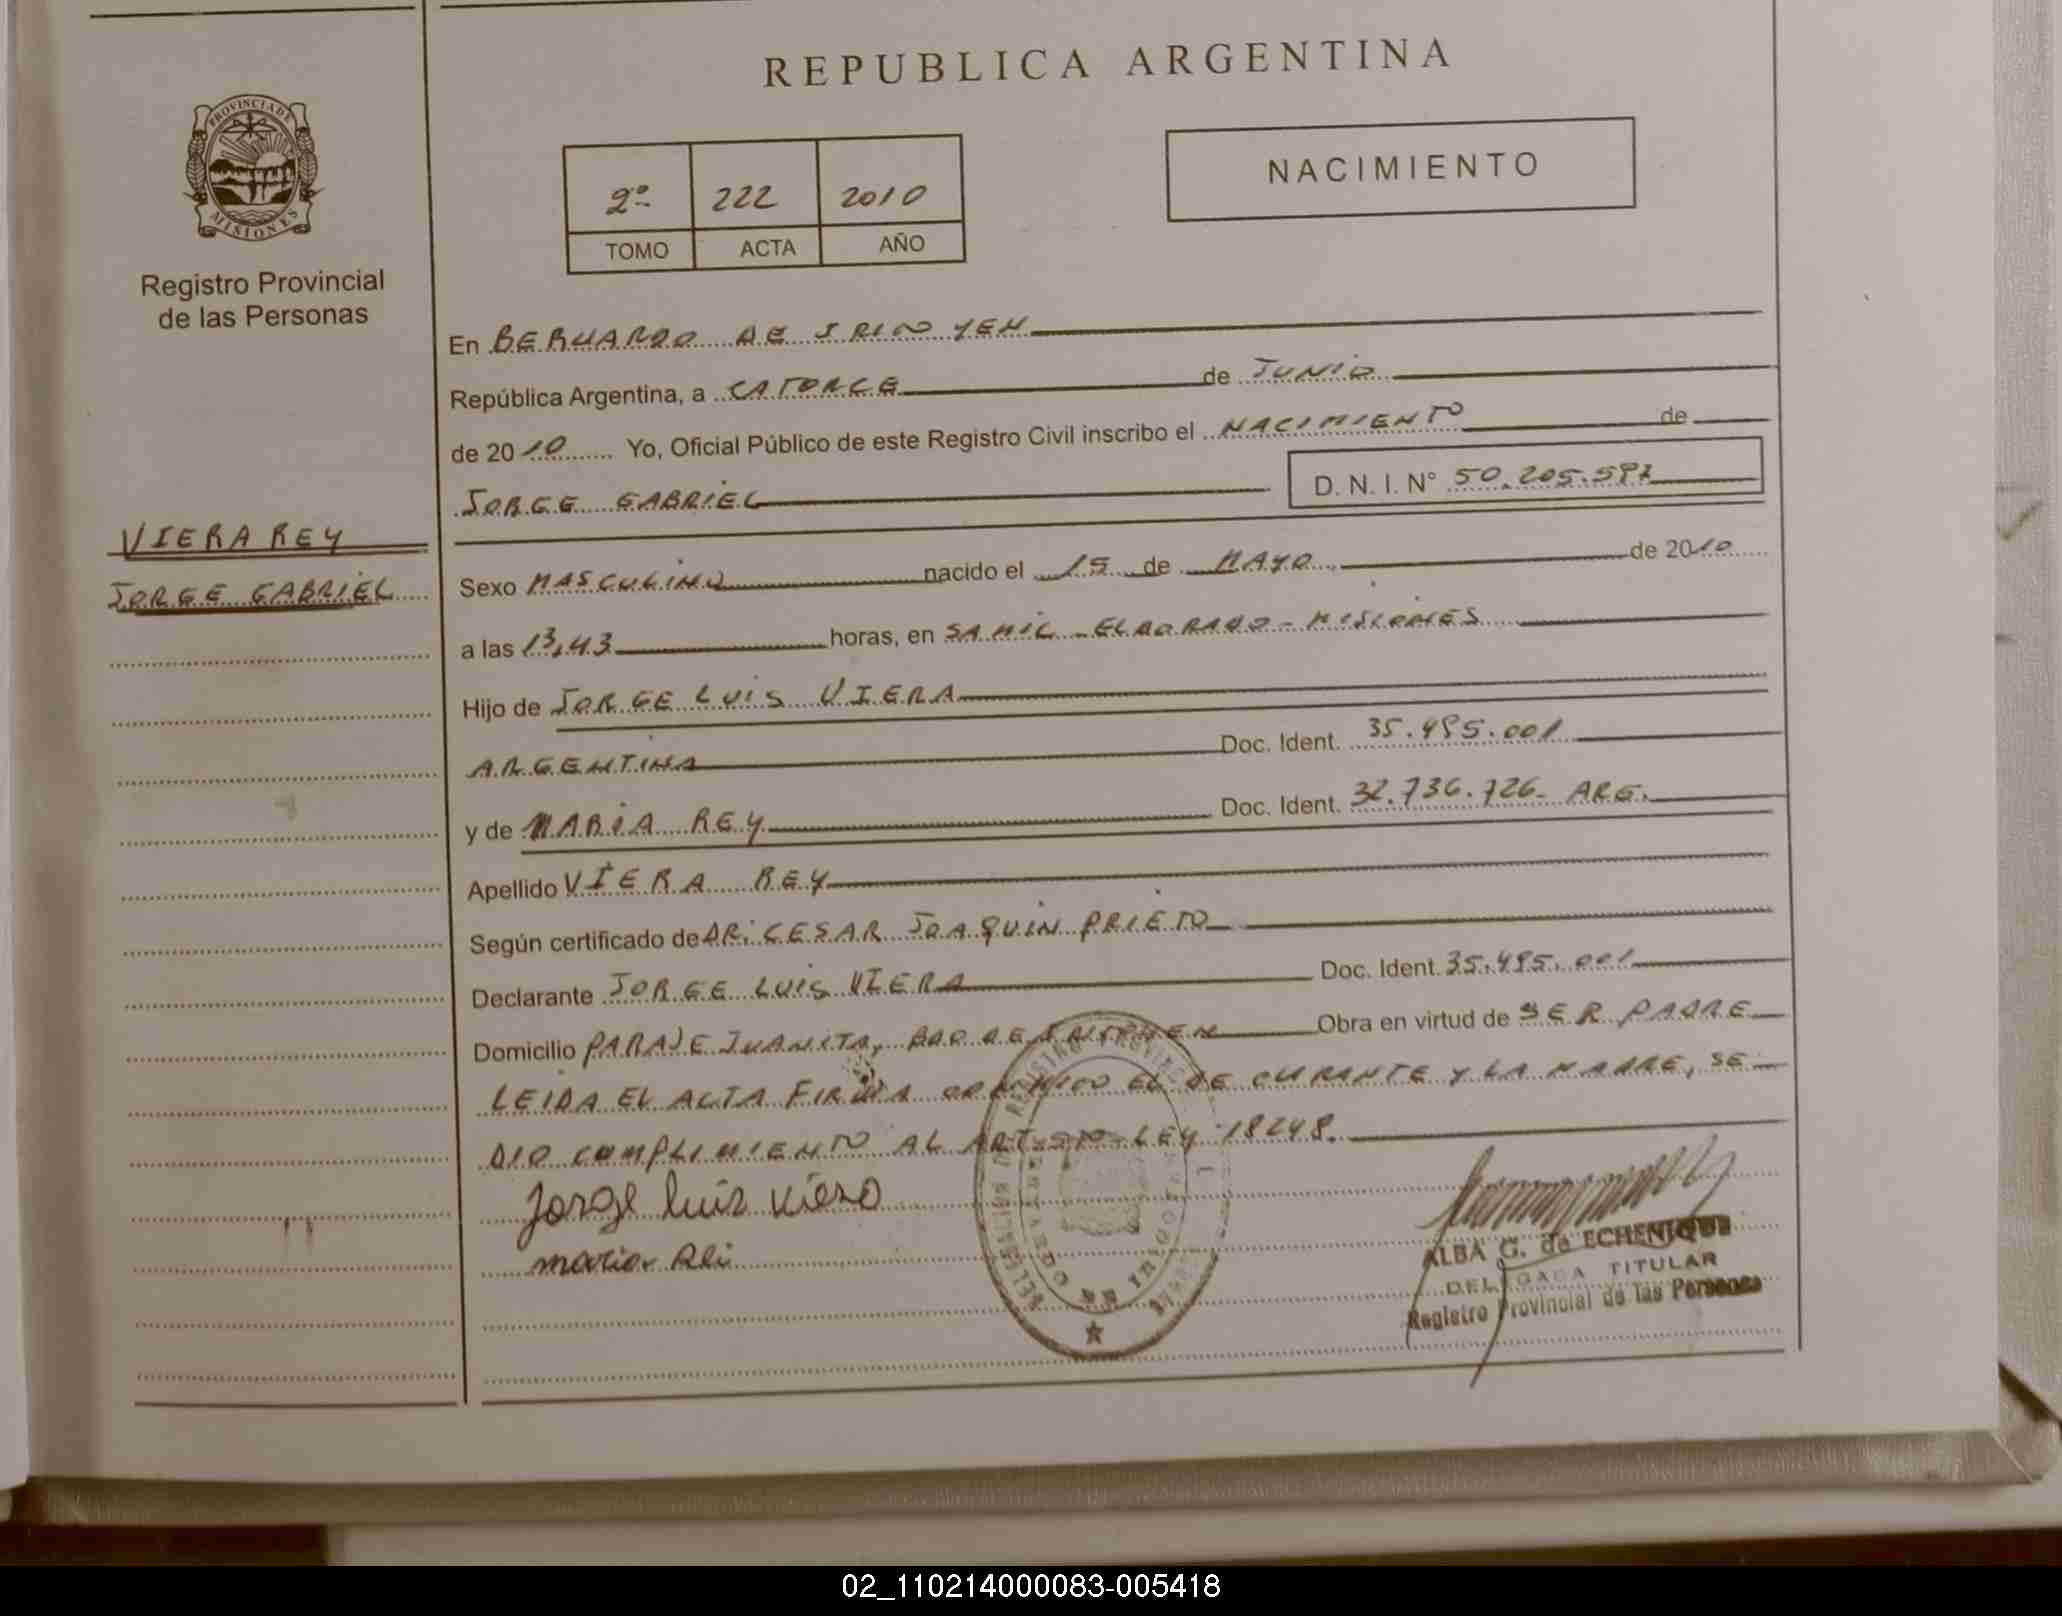 REPUBLICA ARGENTINA
PROVINCIA DE MISIONES
Registro Provincial
de las Personas
2º 222 2010
TOMO ACTA AÑO
NACIMIENTO
VIERA REY
JORGE GABRIEL
En BERNARDO DE IRIGOYEN
República Argentina, a CATORCE de JUNIO
de 2010 Yo, Oficial Público de este Registro Civil inscribo el NACIMIENTO de
JORGE GABRIEL D. N. I. Nº 50.205.597
Sexo MASCULINO nacido el 15 de MAYO de 2010
a las 13,43 horas, en SAMIC - ELDORADO - MISIONES
Hijo de JORGE LUIS VIERA
ARGENTINA Doc. Ident. 35.495.001
y de MARIA REY Doc. Ident. 32.736.726- ARG.
Apellido VIERA REY
Según certificado de DR. CESAR JOAQUIN PRIETO
Declarante JORGE LUIS VIERA Doc. Ident. 35.495.001
Domicilio PARAJE JUANITA, BDO DE IRIGOYEN Obra en virtud de SER PADRE
LEIDA EL ACTA FIRMA CONMIGO EL DE CURANTE Y LA MADRE, SE
DIO CUMPLIMIENTO AL ART. 5TO LEY 18248.
Jorge Luis Viera
maria Rei
ALBA G. de ECHENIQUE
DELEGADA TITULAR
Registro Provincial de las Personas
02_110214000083-005418